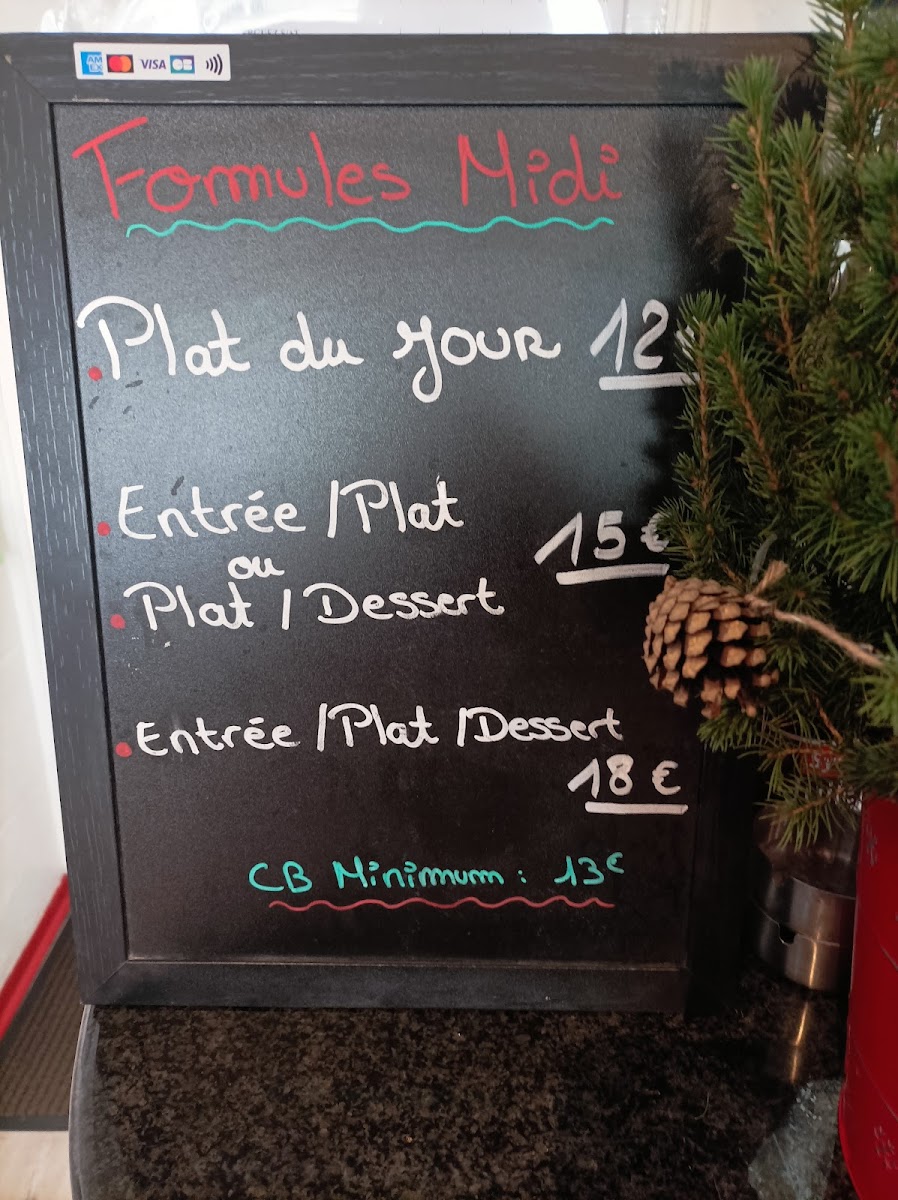 AM
EX
VISA
CB
Formules Midi
Plat du jour 12
Entrée / Plat
15 €
ou
Plat / Dessert
Entrée / Plat / Dessert
18 €
CB Minimum : 13€